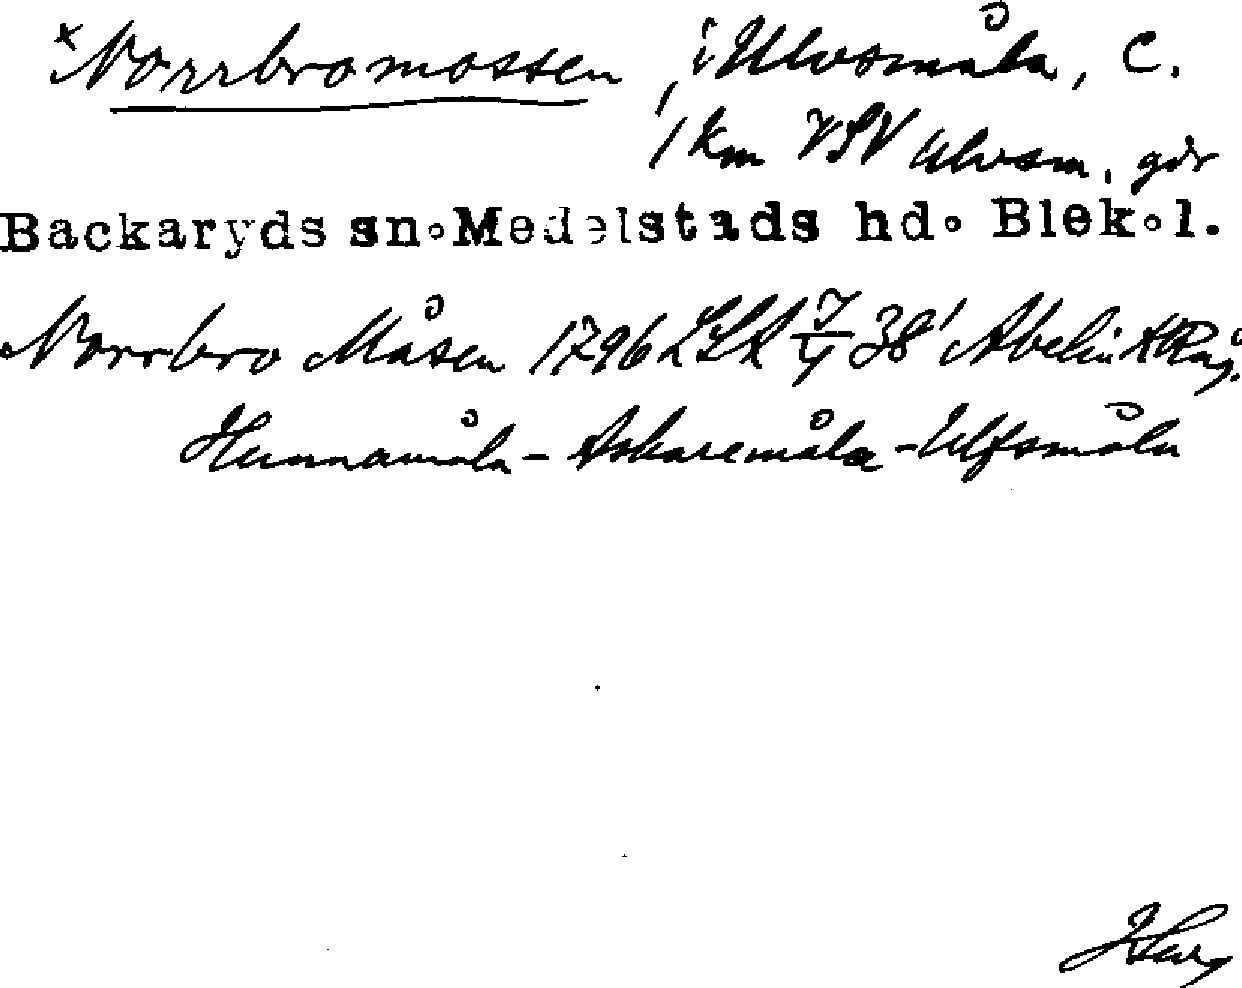 *Norrbromossen, i Ulvsmåla, C.
1 km VSV Ulvsm. går
Backaryds sn. Medelstads hd. Blek.l.
Norrbro Måsen 1796 LSA 38 Abelin
Hunnamåla - Askaremåla - Ulfsmåla